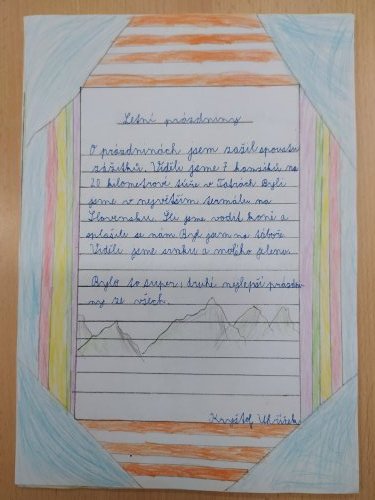 Letní prázdniny
O prázdninách jsem zažil spoustu
zážitků. Viděli jsme 7 kamzíků na
20 kilometrové túře v Tatrách. Byli
jsme v největším termálu na
Slovensku. Šli jsme vodit koně a
splašili se nám. Byl jsem na táboře.
Viděli jsme srnku a malého jelena.
Bylo to super, druhé nejlepší prázdni
ny ze všech.
Kryštof